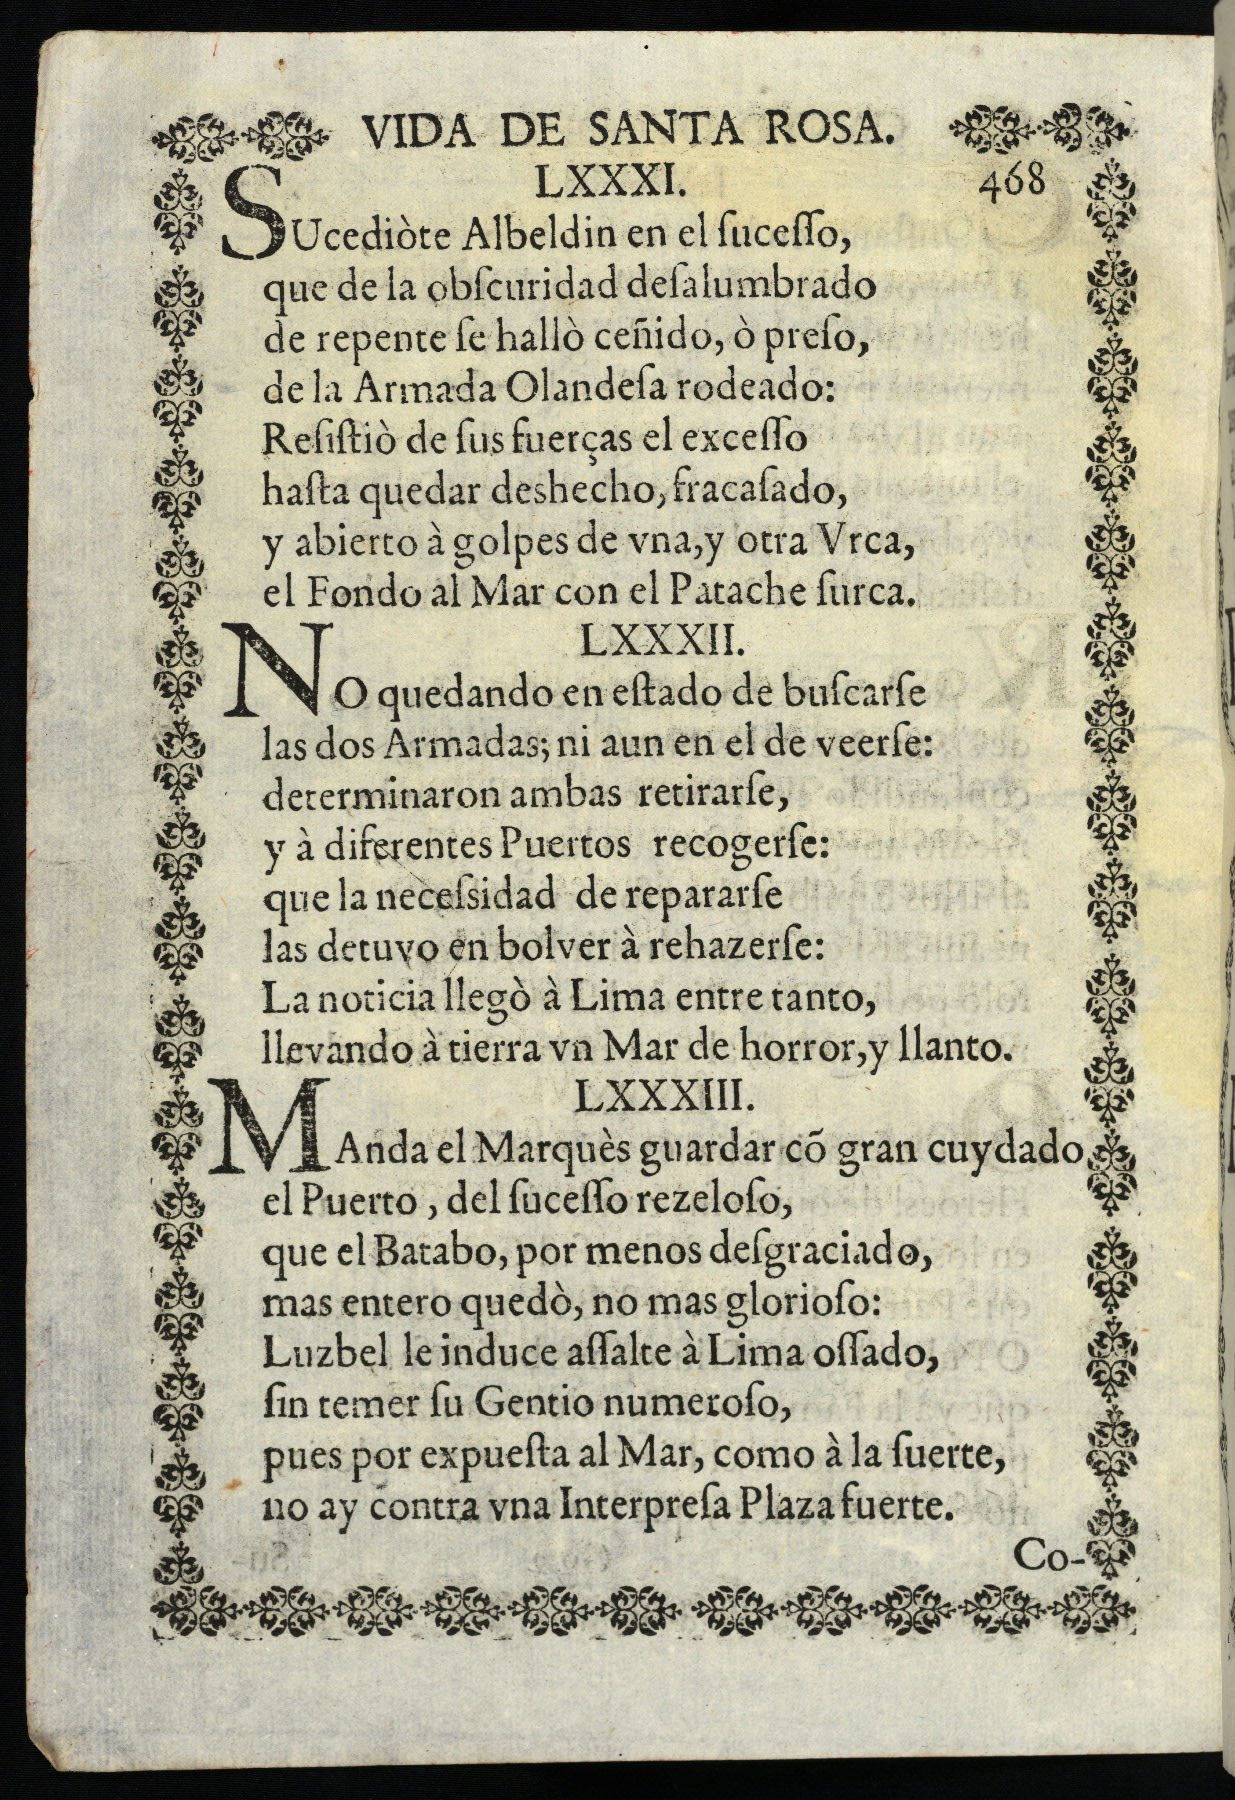 VIDA DE SANTA ROSA.
LXXXI. 468
SUcediòte Albeldin en el ſuceſſo,
que de la obſcuridad deſalumbrado
de repente ſe hallò ceñido, ò preſo,
de la Armada Olandeſa rodeado:
Reſiſtiò de ſus fuerças el exceſſo
haſta quedar deshecho, fracaſado,
y abierto à golpes de vna, y otra Vrca,
el Fondo al Mar con el Patache ſurca.
LXXXII.
NO quedando en eſtado de buſcarſe
las dos Armadas; ni aun en el de veerſe:
determinaron ambas retirarſe,
y à diferentes Puertos recogerſe:
que la neceſsidad de repararſe
las detuvo en bolver à rehazerſe:
La noticia llegò à Lima entre tanto,
llevando à tierra vn Mar de horror, y llanto.
LXXXIII.
MAnda el Marquès guardar cõ gran cuydado
el Puerto, del ſuceſſo rezeloſo,
que el Batabo, por menos deſgraciado,
mas entero quedò, no mas glorioſo:
Luzbel le induce aſſalte à Lima oſſado,
ſin temer ſu Gentio numeroſo,
pues por expueſta al Mar, como à la ſuerte,
no ay contra vna Interpreſa Plaza fuerte.
Co-